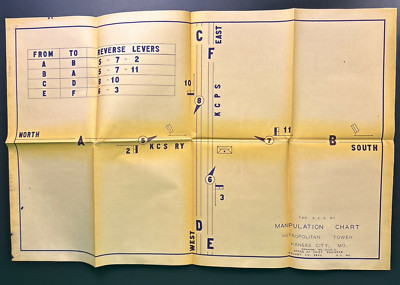 FROM TO REVERSE LEVERS
A B 5 - 7 - 2
B A 5 - 7 - 11
C D 8 - 10
E F 6 - 3
C
F
EAST
10
8
KCPS
NORTH
A
5
2
KCS RY
7
11
B
SOUTH
6
3
WEST
D
E
THE K.C.S. RY
MANIPULATION CHART
METROPOLITAN TOWER
KANSAS CITY, MO.